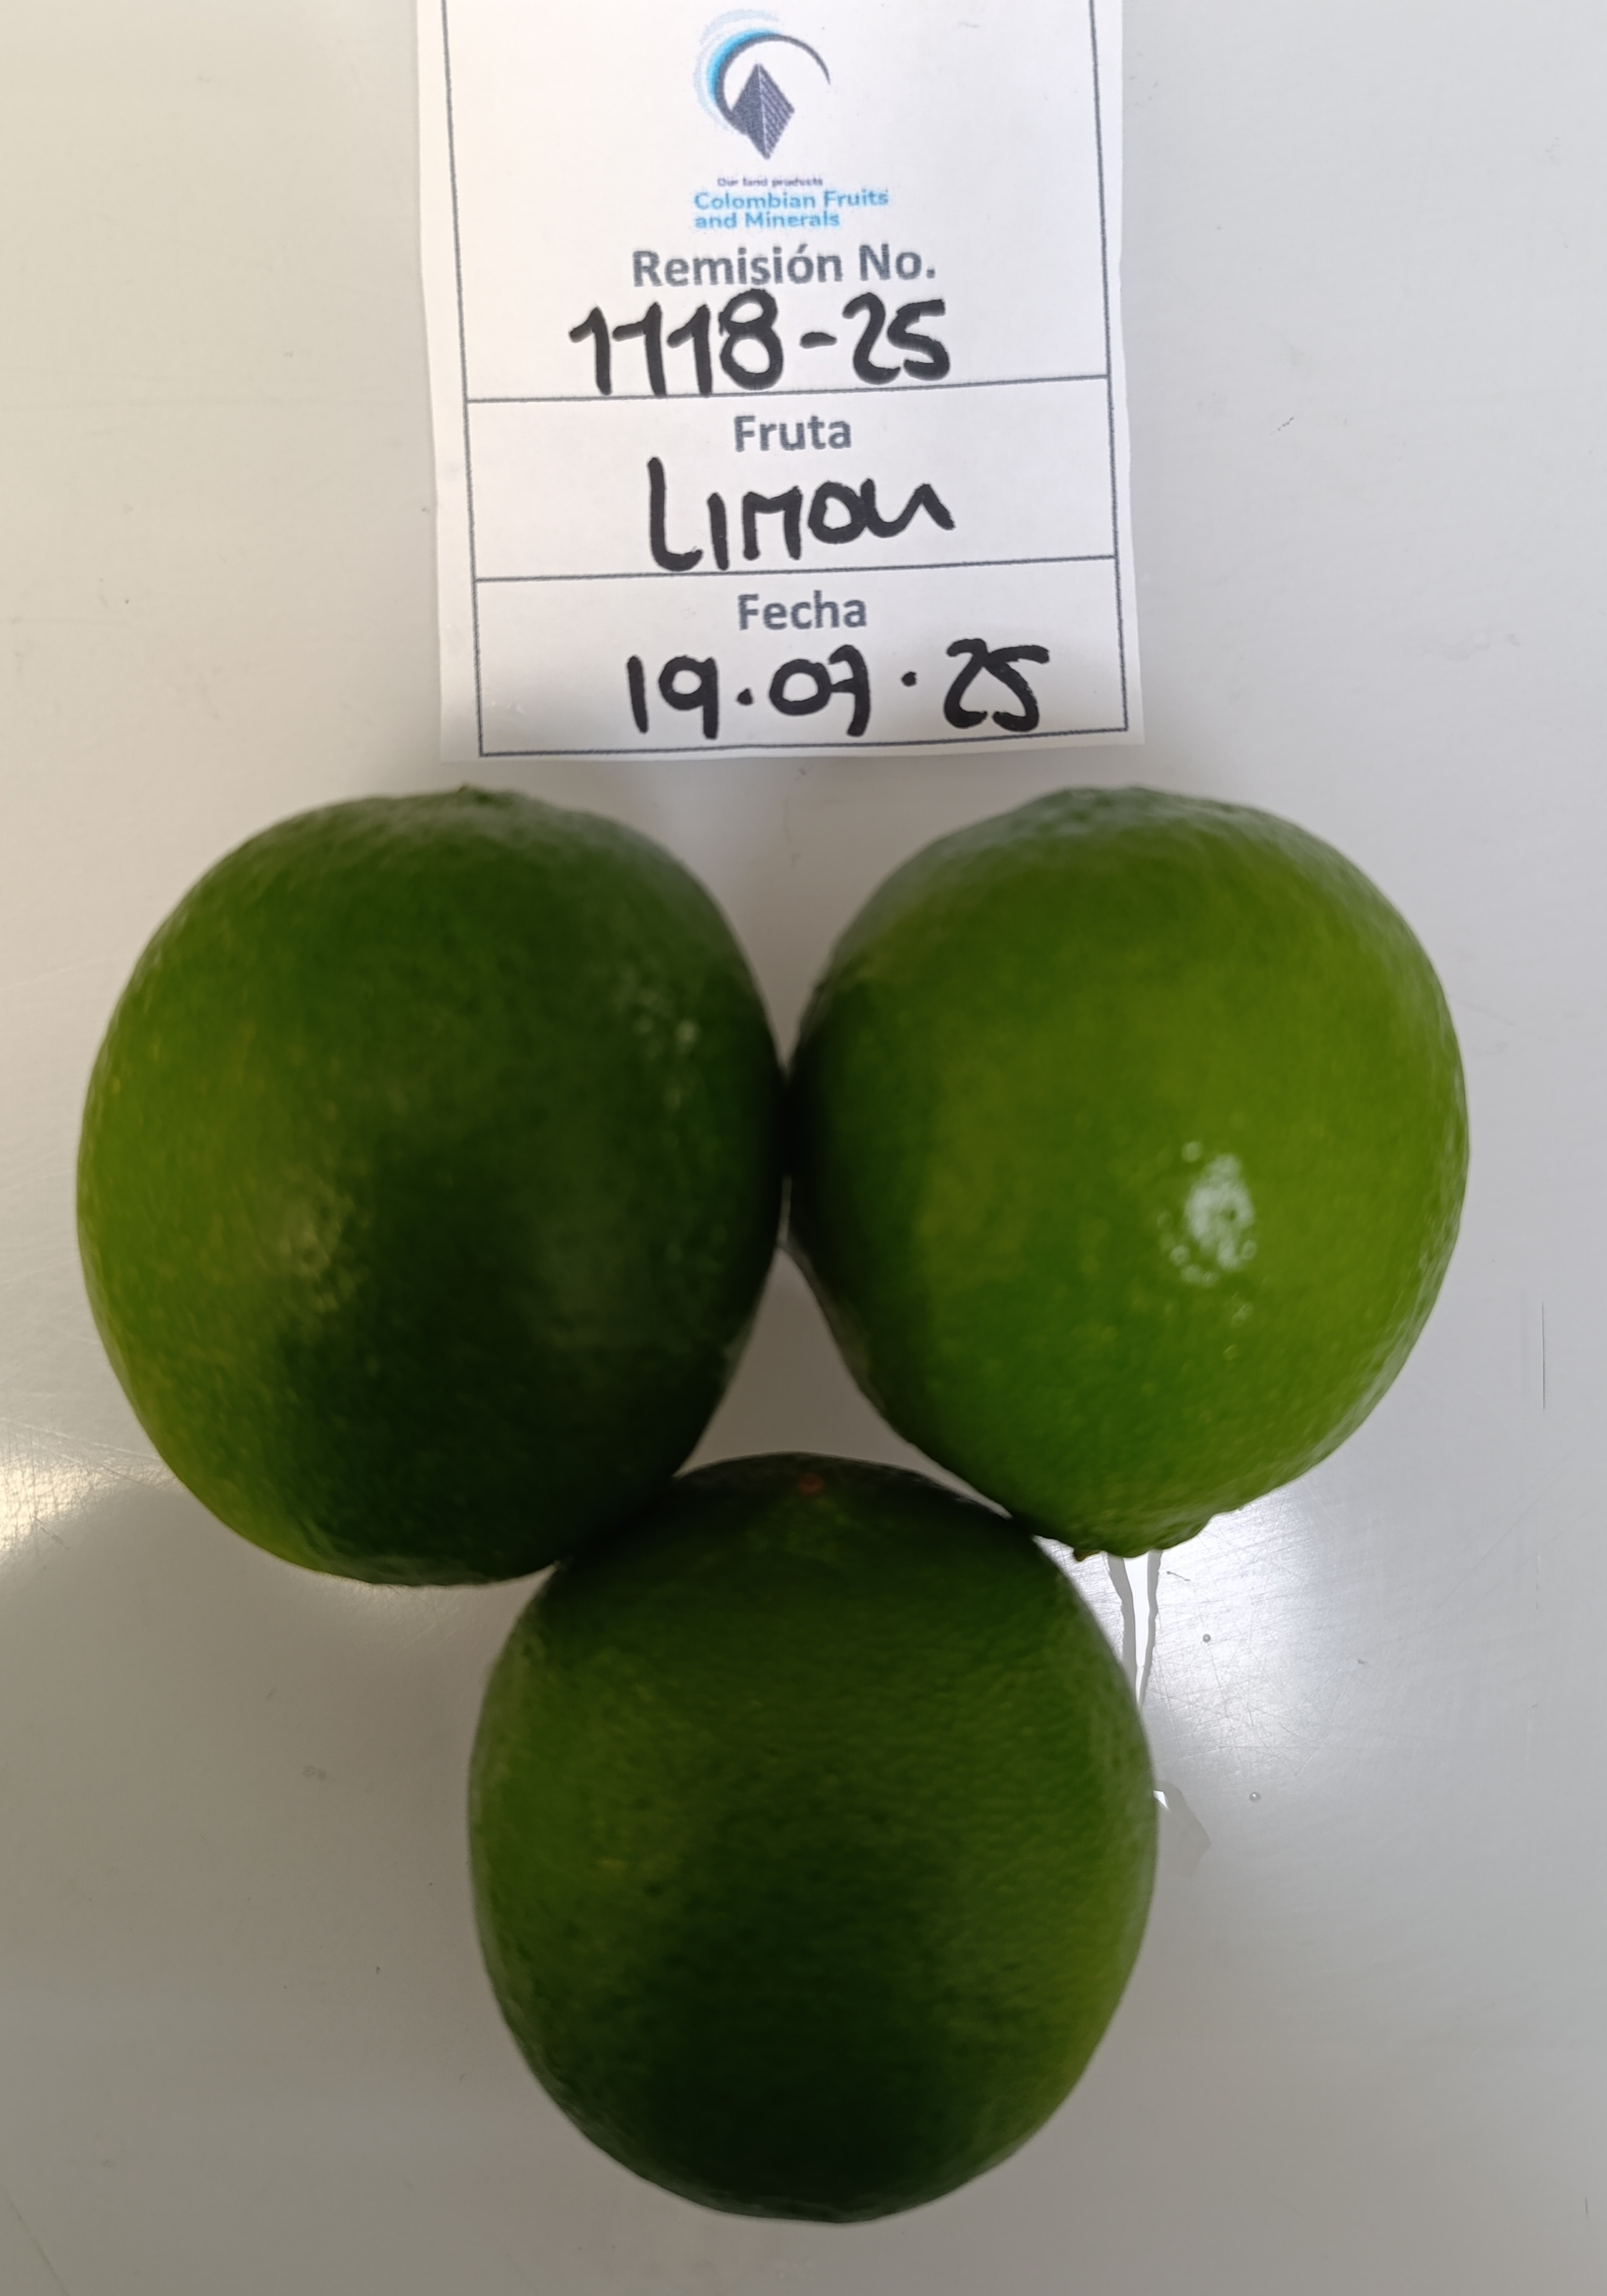 Our land products
Colombian Fruits
and Minerals
Remisión No.
1118-25
Fruta
Limon
Fecha
19.07.25